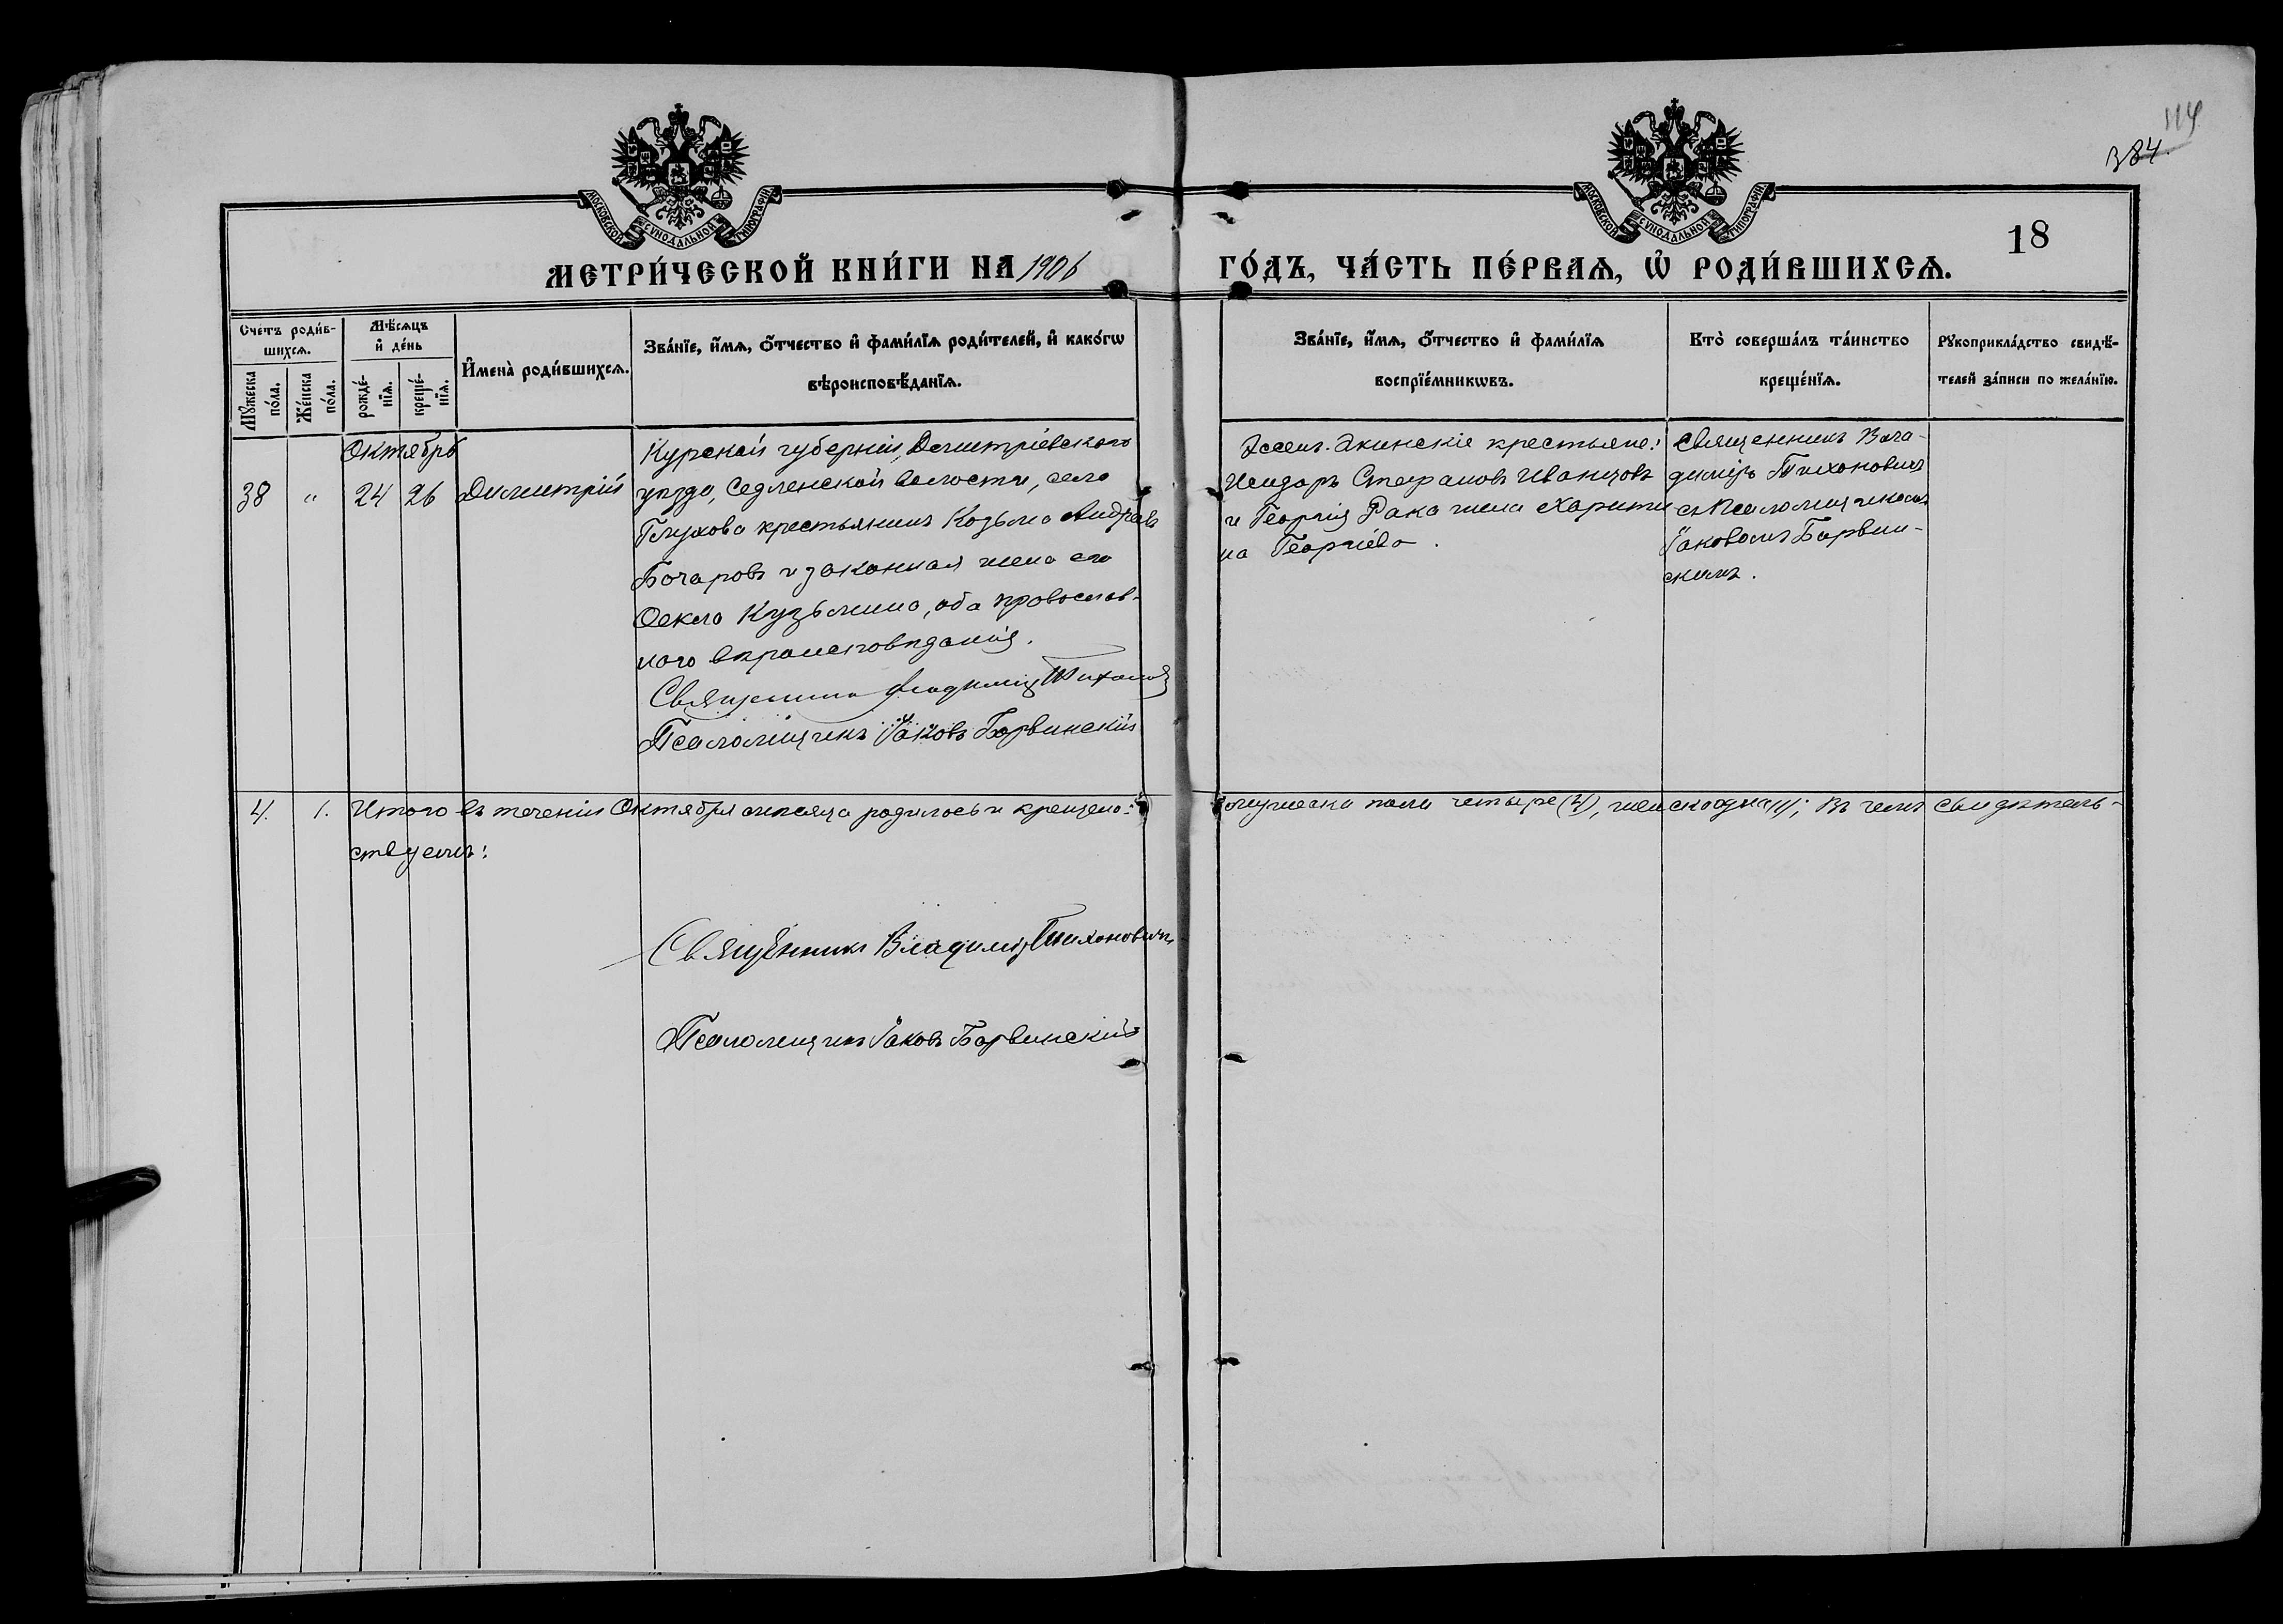 114
384.
18
МОСКОВСКОЙ СѴНОДАЛЬНОЙ ТИПОГРАФІИ
МОСКОВСКОЙ СѴНОДАЛЬНОЙ ТИПОГРАФІИ
МЕТРИ́ЧЕСКОЙ КНИ́ГИ НА 1906 ГО́ДЪ, ЧА́СТЬ ПЕ́РВАѦ, Ѡ҆ РОДИ́ВШИХСѦ.
Счетъ роди́в-
шихсѧ.
Мꙋ́жеска
по́ла.
Же́нска
по́ла.
Мѣ́сѧцъ
и҆ де́нь
рожде́-
нїѧ.
креще́-
нїѧ.
И҆мена̀ роди́вшихсѧ.
Зва́нїе, и҆́мѧ, ѻ҆́тчество и҆ фами́лїѧ роди́телей, и҆ како́гѡ
вѣроисповѣ́данїѧ.
Зва́нїе, и҆́мѧ, ѻ҆́тчество и҆ фами́лїѧ
воспрїе́мникѡвъ.
Кто̀ соверша́лъ та́инство
креще́нїѧ.
Рꙋкоприкла́дство свидѣ́-
телей за́писи по жела́нїю.
Октябрь
38 " 24 26 Димитрій
Курской губерніи, Дмитріевского
уѣзда, волости, села
Глухова крестьянинъ Козьма Андреевъ
Бочаровъ и законная жена его
Ѳекла Кузьмина, оба православ-
наго вѣроисповѣданія.
Священникъ Владиміръ Тихонович
Псаломщикъ Іаковъ Барвинскій
крестьяне:
Исидоръ Стефановъ Иванцовъ
и Георгія Рака жена Харити-
на Георгіева.
Священникъ Вла-
диміръ Тихонович
съ псаломщикомъ
Іаковомъ Барвин-
скимъ.
4. 1. Итого въ теченіи Октября мѣсяца родилось и крещено: мужеска пола четыре (4), женска одна (1); въ чемъ свидѣтель-
ствуемъ:
Священникъ Владиміръ Тихонович
Псаломщикъ Іаковъ Барвинскій